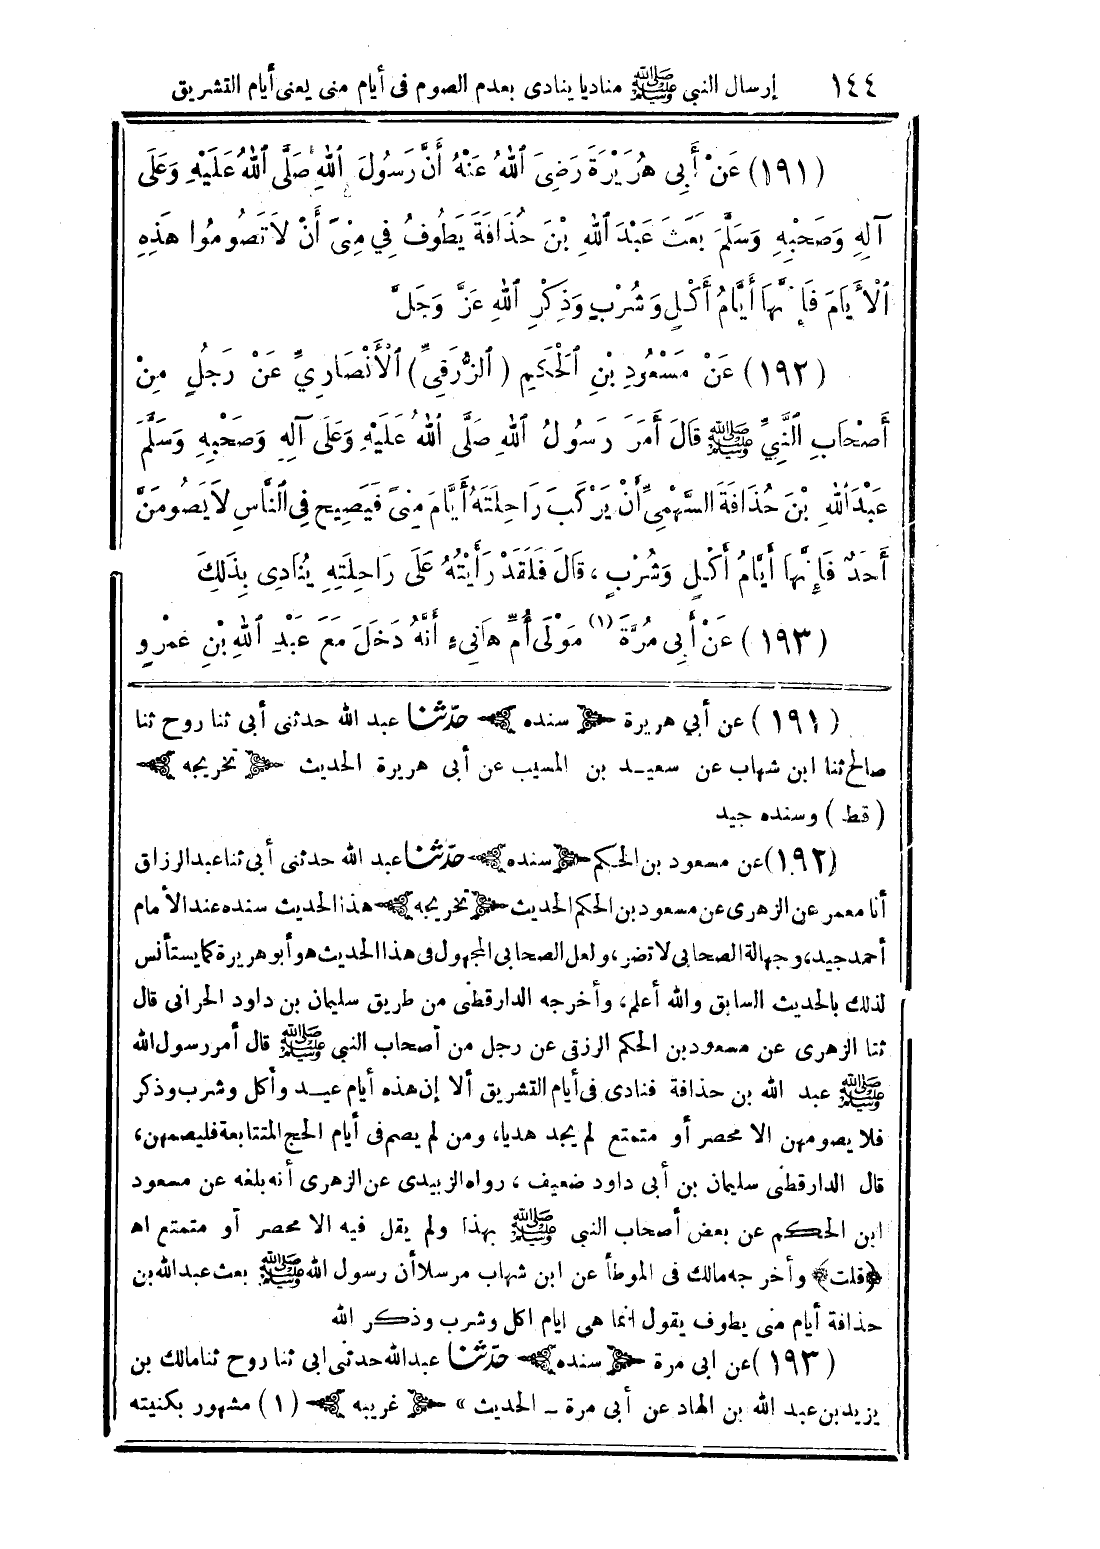 ١٤٤ إرسال النبي ﷺ مناديا ينادى بعدم الصوم فى أيام منى يعنى أيام التشريق
(١٩١) عَنْ أَبِي هُرَيْرَةَ رَضِيَ اللهُ عَنْهُ أَنَّ رَسُولَ اللهِ صَلَّى اللهُ عَلَيْهِ وَعَلَى
آلِهِ وَصَحْبِهِ وَسَلَّمَ بَعَثَ عَبْدَ اللهِ بْنَ حُذَافَةَ يَطُوفُ فِي مِنًى أَنْ لَا تَصُومُوا هَذِهِ
الْأَيَّامَ فَإِنَّهَا أَيَّامُ أَكْلٍ وَشُرْبٍ وَذِكْرِ اللهِ عَزَّ وَجَلَّ
(١٩٢) عَنْ مَسْعُودِ بْنِ الْحَكَمِ (الزُّرَقِيِّ) الْأَنْصَارِيِّ عَنْ رَجُلٍ مِنْ
أَصْحَابِ النَّبِيِّ ﷺ قَالَ أَمَرَ رَسُولُ اللهِ صَلَّى اللهُ عَلَيْهِ وَعَلَى آلِهِ وَصَحْبِهِ وَسَلَّمَ
عَبْدَ اللهِ بْنَ حُذَافَةَ السَّهْمِيَّ أَنْ يَرْكَبَ رَاحِلَتَهُ أَيَّامَ مِنًى فَيَصِيحَ فِى النَّاسِ لَا يَصُومَنَّ
أَحَدٌ فَإِنَّهَا أَيَّامُ أَكْلٍ وَشُرْبٍ ، قَالَ فَلَقَدْ رَأَيْتُهُ عَلَى رَاحِلَتِهِ يُنَادِى بِذَلِكَ
(١٩٣) عَنْ أَبِى مُرَّةَ (١) مَوْلَى أُمِّ هَانِىءٍ أَنَّهُ دَخَلَ مَعَ عَبْدِ اللهِ بْنِ عَمْرٍو
(١٩١) عن أبي هريرة ﴿ سنده ﴾ حدثنا عبد الله حدثنى أبى ثنا روح ثنا
صالح ثنا ابن شهاب عن سعيد بن المسيب عن أبى هريرة الحديث ﴿ تخريجه ﴾
( قط ) وسنده جيد
(١٩٢) عن مسعود بن الحكم ﴿ سنده ﴾ حدثنا عبد الله حدثنى أبى ثنا عبد الرزاق
أنا معمر عن الزهرى عن مسعود بن الحكم الحديث ﴿ تخريجه ﴾ هذا الحديث سنده عند الأمام
أحمد جيد، وجهالة الصحابى لا تضر ، ولعل الصحابى المجهول فى هذا الحديث هو أبو هريرة كما يستأنس
لذلك بالحديث السابق والله أعلم، وأخرجه الدارقطنى من طريق سليمان بن داود الحرانى قال
ثنا الزهرى عن مسعود بن الحكم الرزقى عن رجل من أصحاب النبي ﷺ قال أمر رسول الله
ﷺ عبد الله بن حذافة فنادى فى أيام التشريق ألا إن هذه أيام عيد وأكل وشرب وذكر
فلا يصومهن الا محصر أو متمتع لم يجد هديا، ومن لم يصم فى أيام الحج المتتابعة فليصمهن،
قال الدارقطنى سليمان بن أبى داود ضعيف ، رواه الزبيدى عن الزهرى أنه بلغه عن مسعود
ابن الحكم عن بعض أصحاب النبي ﷺ بهذا ولم يقل فيه الا محصر أو متمتع اه
﴿قلت﴾ وأخرجه مالك فى الموطأ عن ابن شهاب مرسلا أن رسول الله ﷺ بعث عبد الله بن
حذافة أيام منى يطوف يقول انما هى ايام اكل وشرب وذكر الله
(١٩٣) عن ابى مرة ﴿ سنده ﴾ حدثنا عبد الله حدثنى ابى ثنا روح ثنا مالك بن
يزيد بن عبد الله بن الهاد عن أبى مرة ـ الحديث » ﴿ غريبه ﴾ (١) مشهور بكنيته